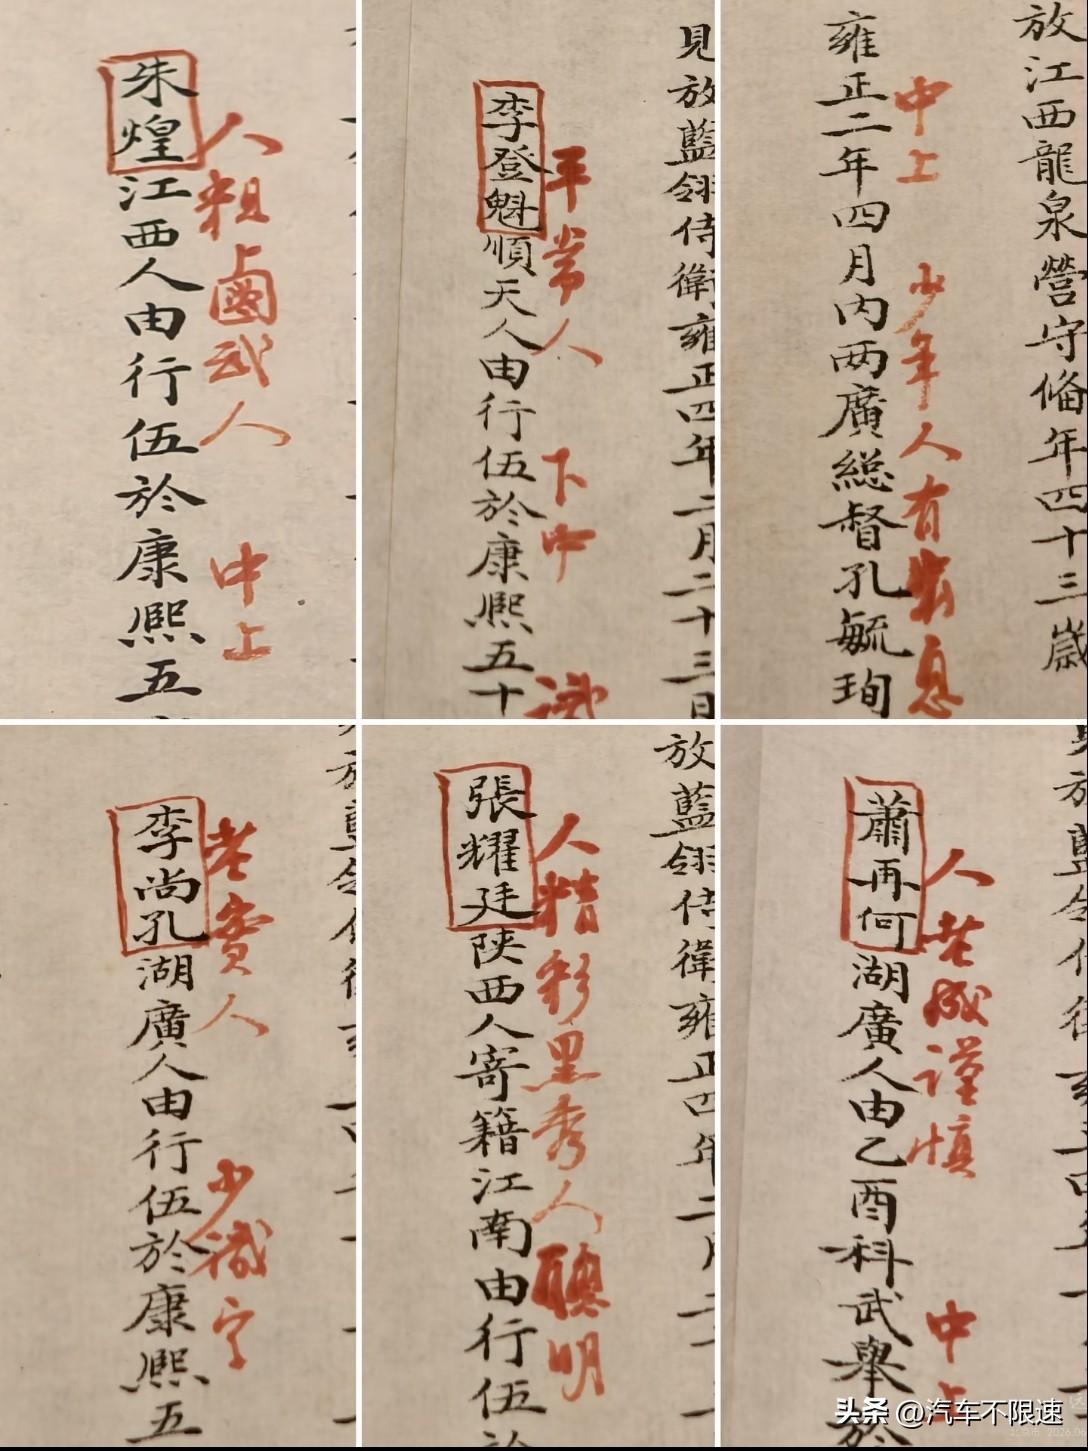 人粗鹵武人 中上
朱煌江西人由行伍於康熙五
見放藍翎侍衛雍正四年二月二十三日
平常人 下中 識
李登魁順天人由行伍於康熙五十
放江西龍泉營守俻年四十三歲
中上 少年人有出息
雍正二年四月內两廣總督孔毓珣
老實人 少識字
李尚孔湖廣人由行伍於康熙五
放藍翎侍衛雍正四年二月二十
人精彩黑秀人聰明
張耀廷陕西人寄籍江南由行伍於
人老成謹慎 中上
蕭再何湖廣人由乙酉科武舉於
头条 @汽车不限速